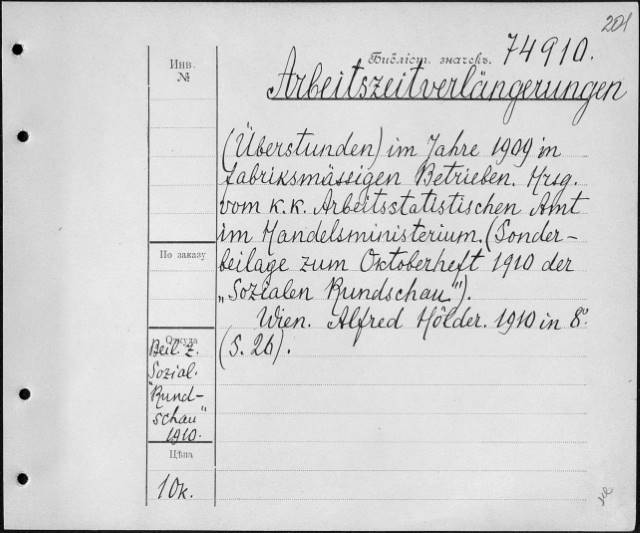 201
Библіот. значекъ. 74910.
Инв.
№
Arbeitszeitverlängerungen
(Überstunden) im Jahre 1909 in
fabriksmässigen Betrieben. Hrsg.
vom K.K. Arbeitsstatistischen Amt
im Handelsministerium. (Sonder-
beilage zum Oktoberheft 1910 der
„Sozialen Rundschau").
Wien. Alfred Hölder. 1910 in 8°.
(S. 26).
По заказу
Откуда
Beil. z.
Sozial.
"Rund-
schau"
1910.
Цѣна
10к.